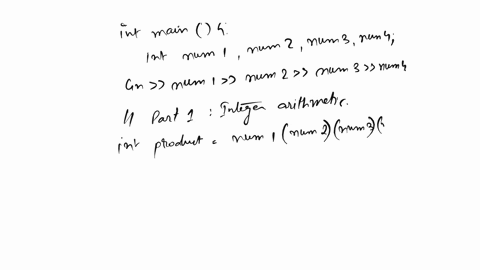 int main () {
int num 1 , num 2 , num 3 , num 4 ;
Cin >> num 1 >> num 2 >> num 3 >> num 4
// Part 1 : Integer arithmetic.
int product = num 1 (num 2) (num 3) (